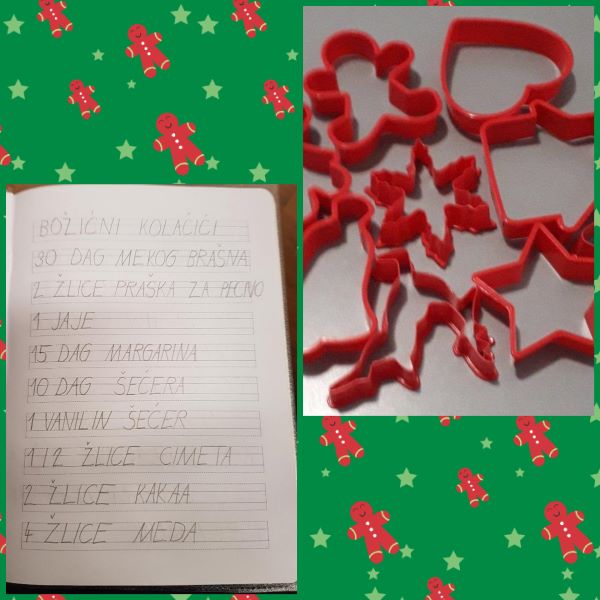 BOŽIĆNI KOLAČIĆI
30 DAG MEKOG BRAŠNA
2 ŽLICE PRAŠKA ZA PECIVO
1 JAJE
15 DAG MARGARINA
10 DAG ŠEĆERA
1 VANILIN ŠEĆER
1 I 2 ŽLICE CIMETA
2 ŽLICE KAKAA
4 ŽLICE MEDA